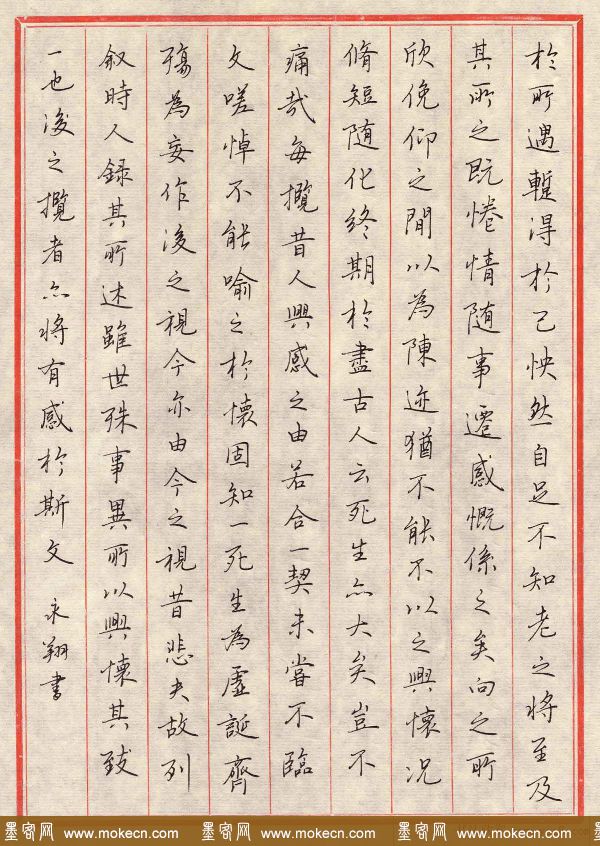 於所遇蹔得於己怏然自足不知老之将至及
其所之既惓情随事遷感慨係之矣向之所
欣俛仰之間以為陳迹猶不能不以之興懷况
脩短随化終期於盡古人云死生亦大矣豈不
痛哉每攬昔人興感之由若合一契未嘗不臨
文嗟悼不能喻之於懷固知一死生為虛誕齊
殤為妄作後之視今亦由今之視昔悲夫故列
叙時人録其所述雖世殊事異所以興懷其致
一也後之攬者亦将有感於斯文 永翔書
墨客网 www.mokecn.com 墨客网 www.mokecn.com 墨客网 www.mokecn.com